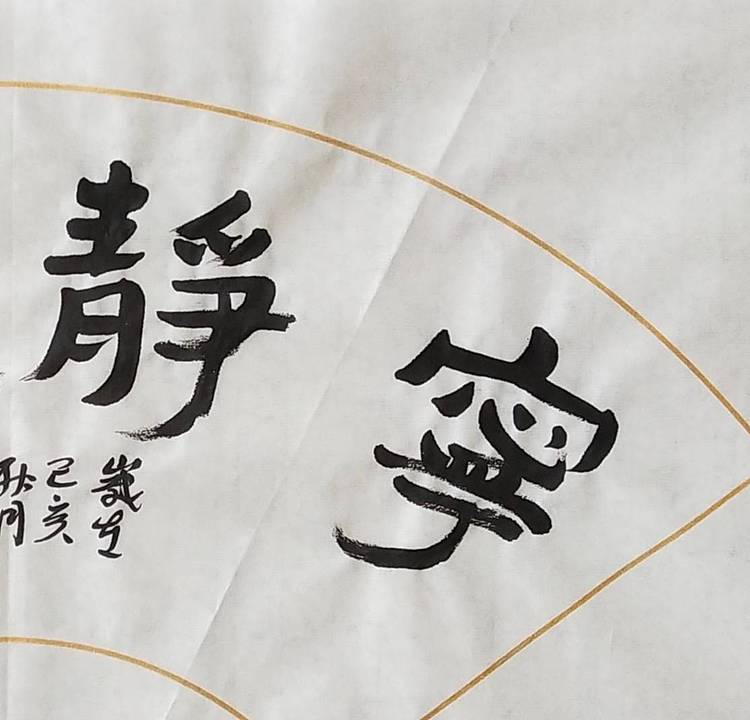 寧靜
歲在
己亥
秋月